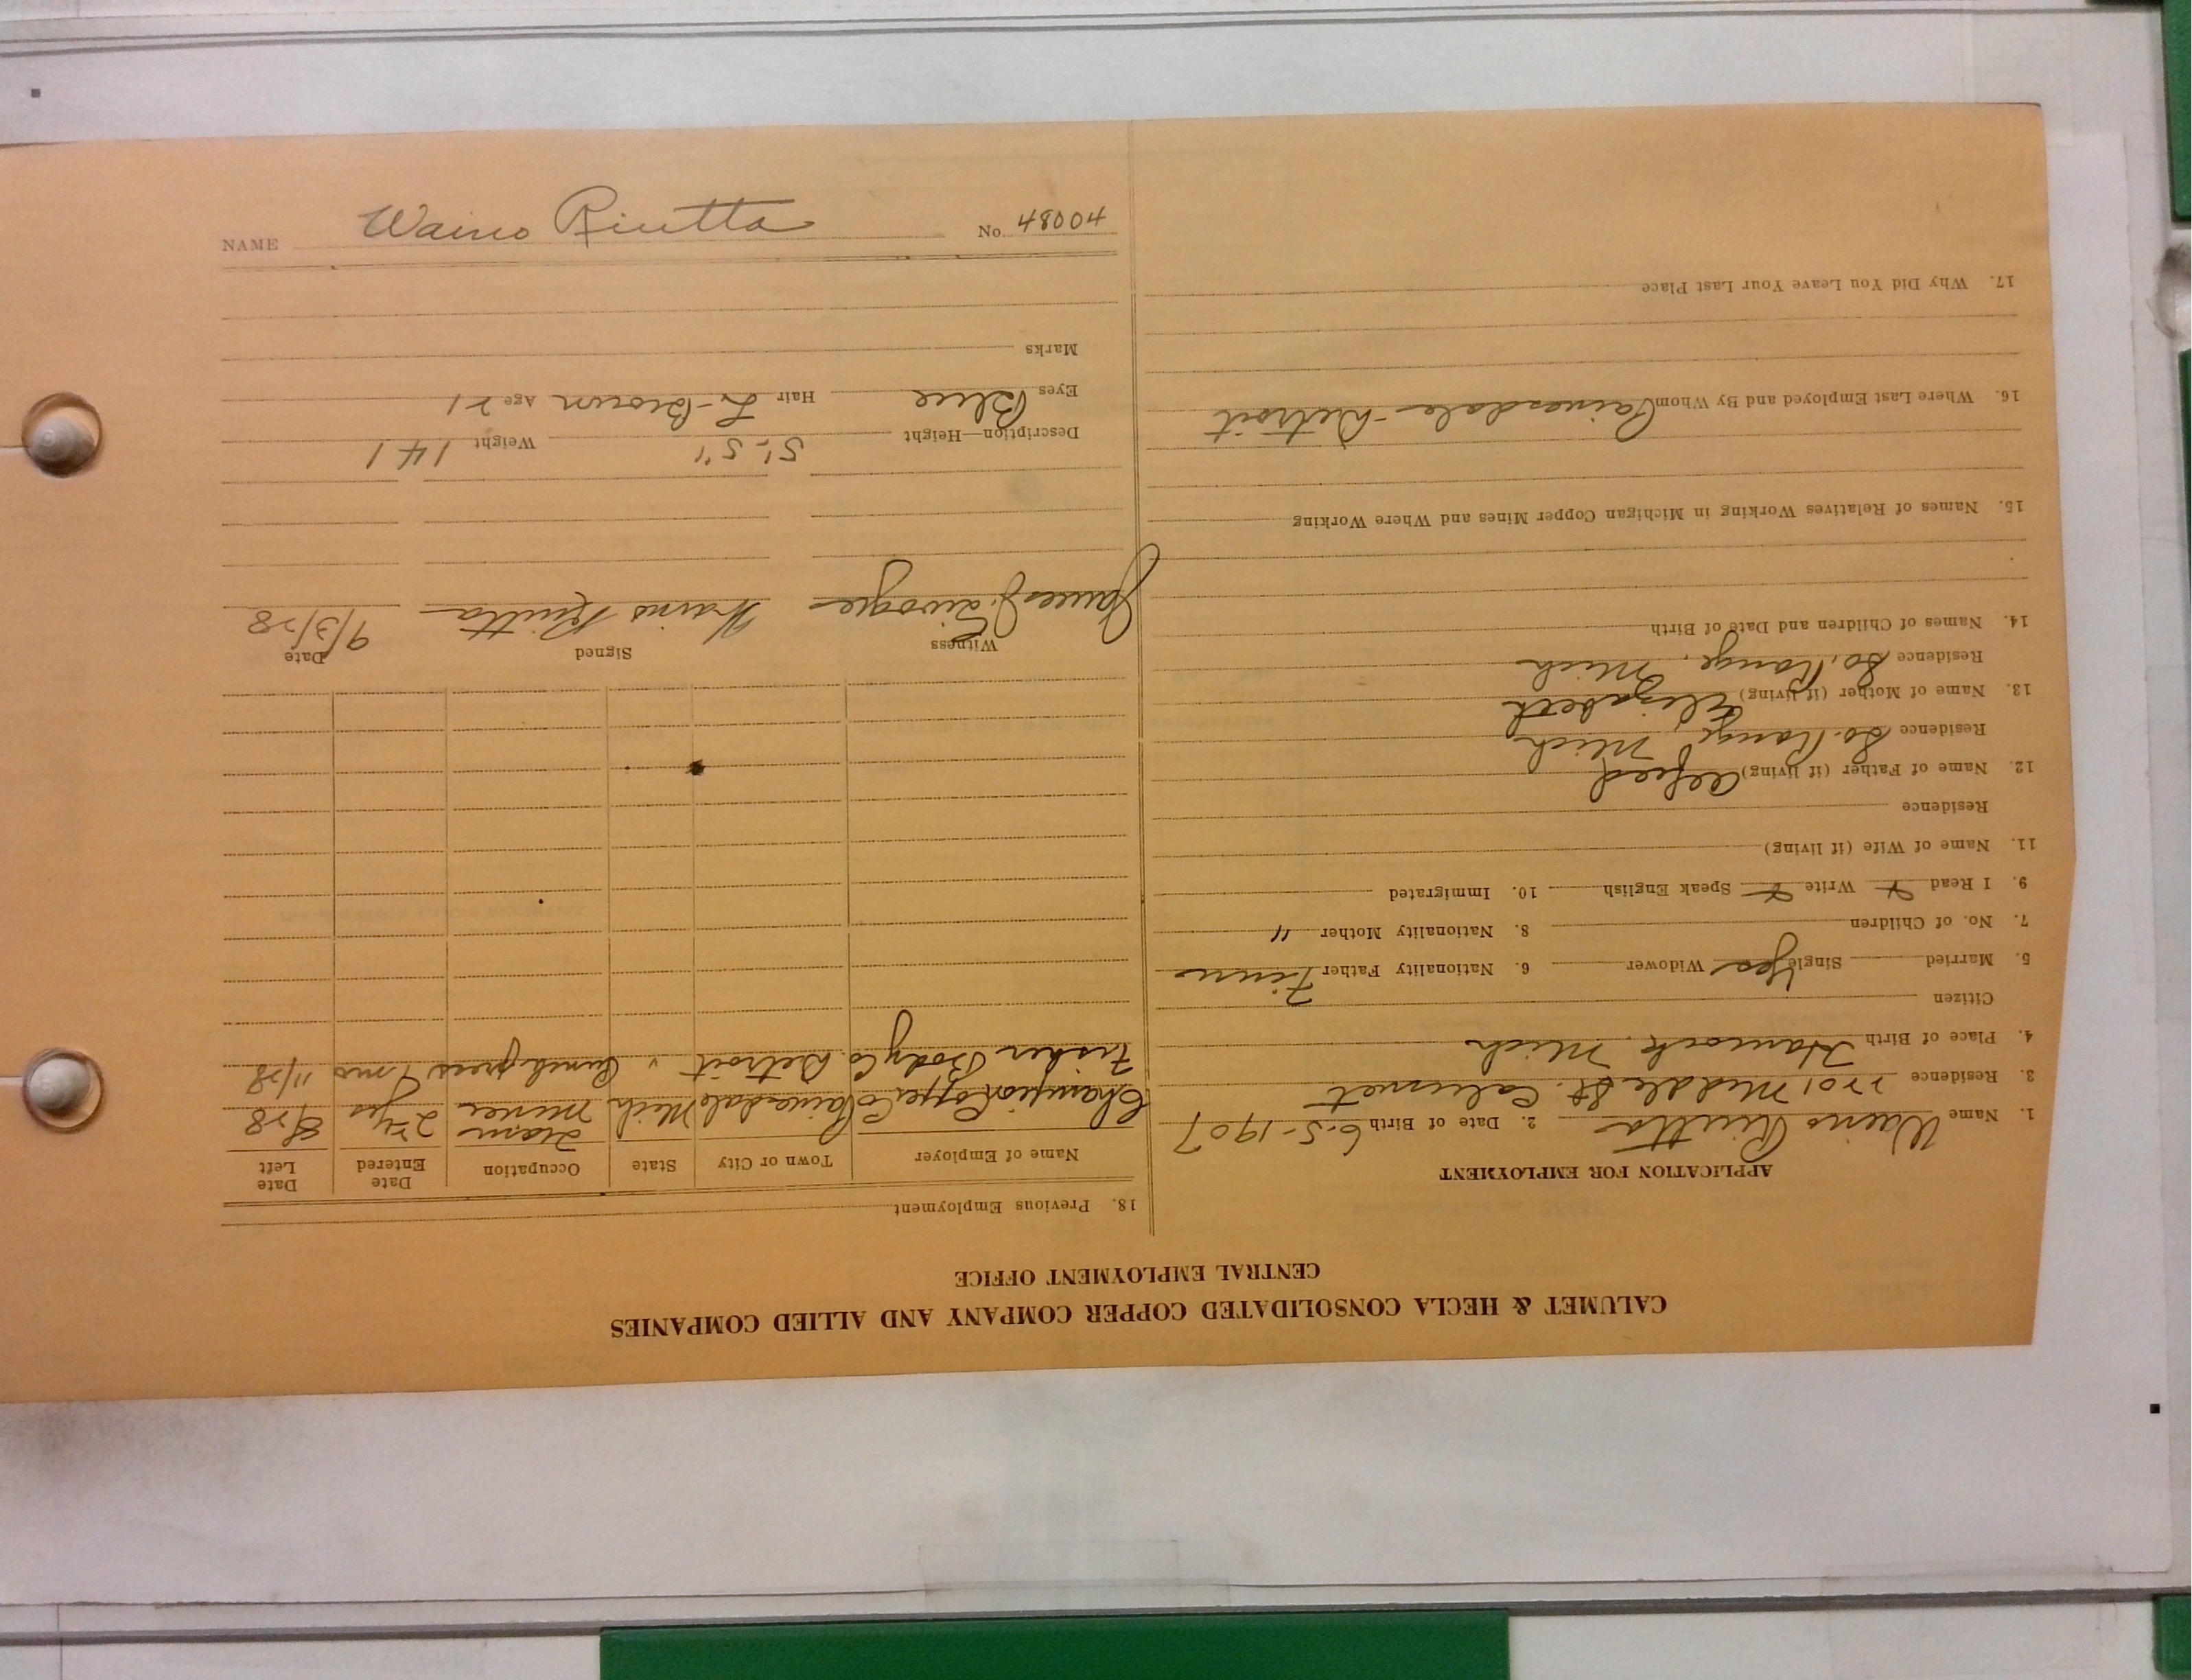 NAME Waino Riutta No. 48004
CALUMET & HECLA CONSOLIDATED COPPER COMPANY AND ALLIED COMPANIES
CENTRAL EMPLOYMENT OFFICE
APPLICATION FOR EMPLOYMENT
1. Name Waino Riutta 2. Date of Birth 6-5-1907
3. Residence 2201 Middle St. Calumet
4. Place of Birth Hancock, Mich
Citizen
5. Married Single Yes Widower 6. Nationality Father Finn
7. No. of Children 8. Nationality Mother "
9. I Read Write Speak English 10. Immigrated
11. Name of Wife (if living)
Residence
12. Name of Father (if living) Alfred
Residence So. Range, Mich
13. Name of Mother (if living) Elizabeth
Residence So. Range, Mich
14. Names of Children and Date of Birth
15. Names of Relatives Working in Michigan Copper Mines and Where Working
16. Where Last Employed and By Whom Painesdale - Detroit
17. Why Did You Leave Your Last Place
18. Previous Employment
Name of Employer Town or City State Occupation Date Entered Date Left
Champion Copper Co Painesdale Mich Miner 2 yrs 8/28
Fisher Body Co. Detroit " Punch press mo 11/28
Witness Signed Date
James Waino Riutta 9/3/28
Description—Height 5'-5" Weight 141
Eyes Blue Hair L-Brown Age 21
Marks